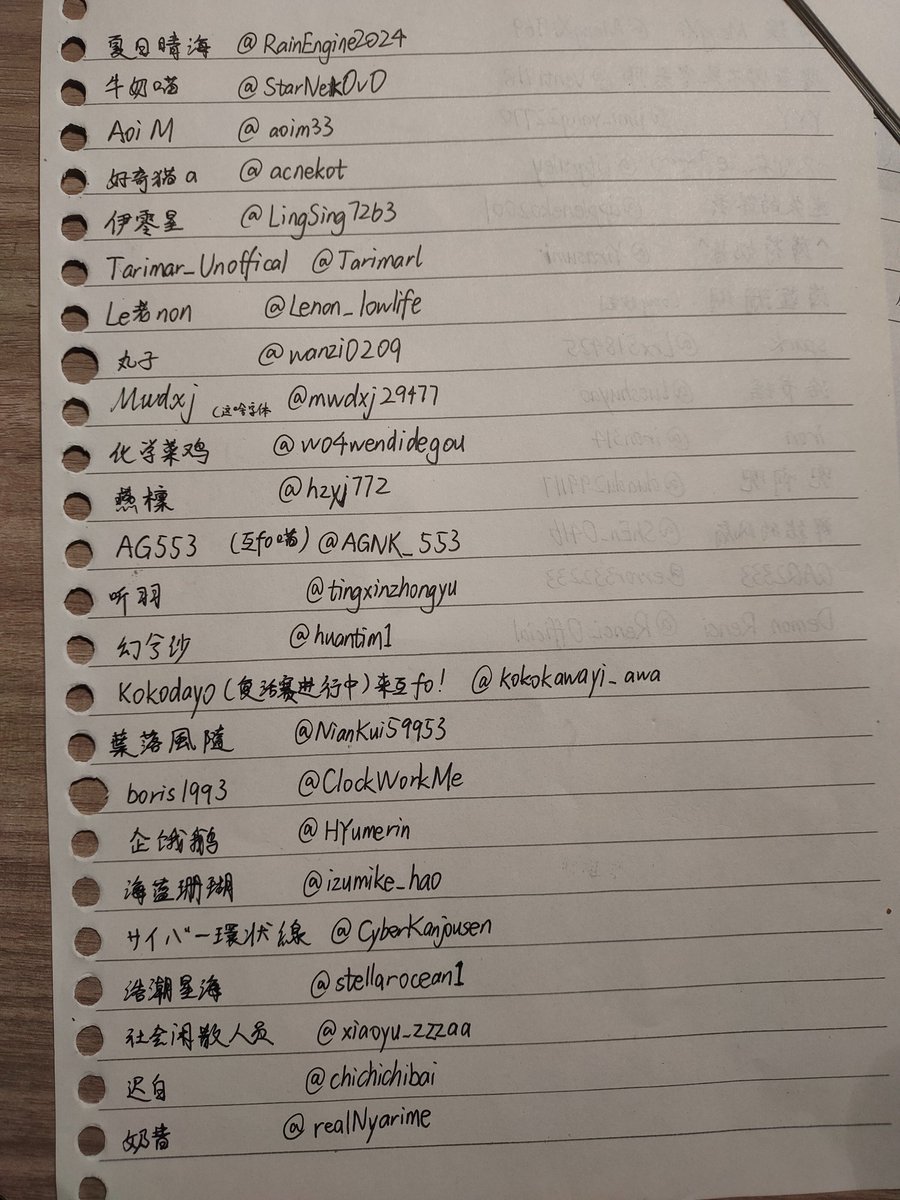 夏日晴海 @RainEngine2024
牛奶喵 @StarNekOvO
Aoi M @aoim33
好奇猫a @acnekot
伊零星 @LingSing7263
Tarimar_Unoffical @Tarimarl
Le老non @Lenon_lowlife
丸子 @wanzi0209
Mwdxj (这啥字体 @mwdxj29477
化学菜鸡 @wo4wendidegou
燕檩 @hzxj772
AG553 (互fo喵) @AGNK_553
听羽 @tingxinzhongyu
幻兮纱 @huantim1
Kokodayo (复活赛进行中) 来互fo! @kokokawayi_awa
葉落風隨 @NianKui59953
boris1993 @ClockWorkMe
企饿鹅 @HYumerin
海蓝珊瑚 @izumike_hao
サイバー環状線 @CyberKanjousen
浩潮星海 @stellarocean1
社会闲散人员 @xiaoyu_zzzaa
迟白 @chichichibai
奶昔 @realNyarime